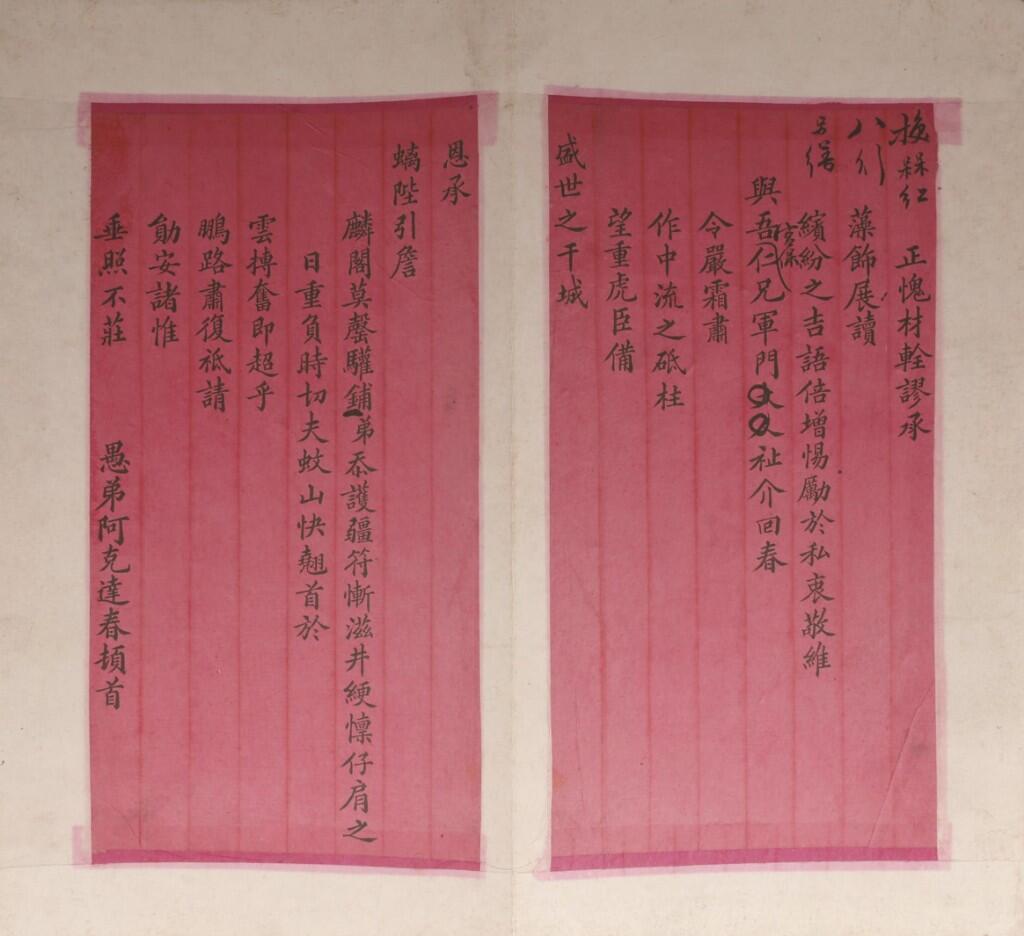 正愧材輇謬承
八行
藻飾展讀
繽紛之吉語倍增惕勵於私衷敬維
與吾仁兄軍門大人祉介回春
令嚴霜肅
作中流之砥柱
望重虎臣備
盛世之干城
恩承
螭陛引詹
麟閣莫罄驩鋪弟忝護疆符慚滋井綆懍仔肩之
日重負時切夫蚊山快翹首於
雲摶奮即超乎
鵬路肅復祗請
勛安諸惟
垂照不莊 愚弟阿克達春頓首